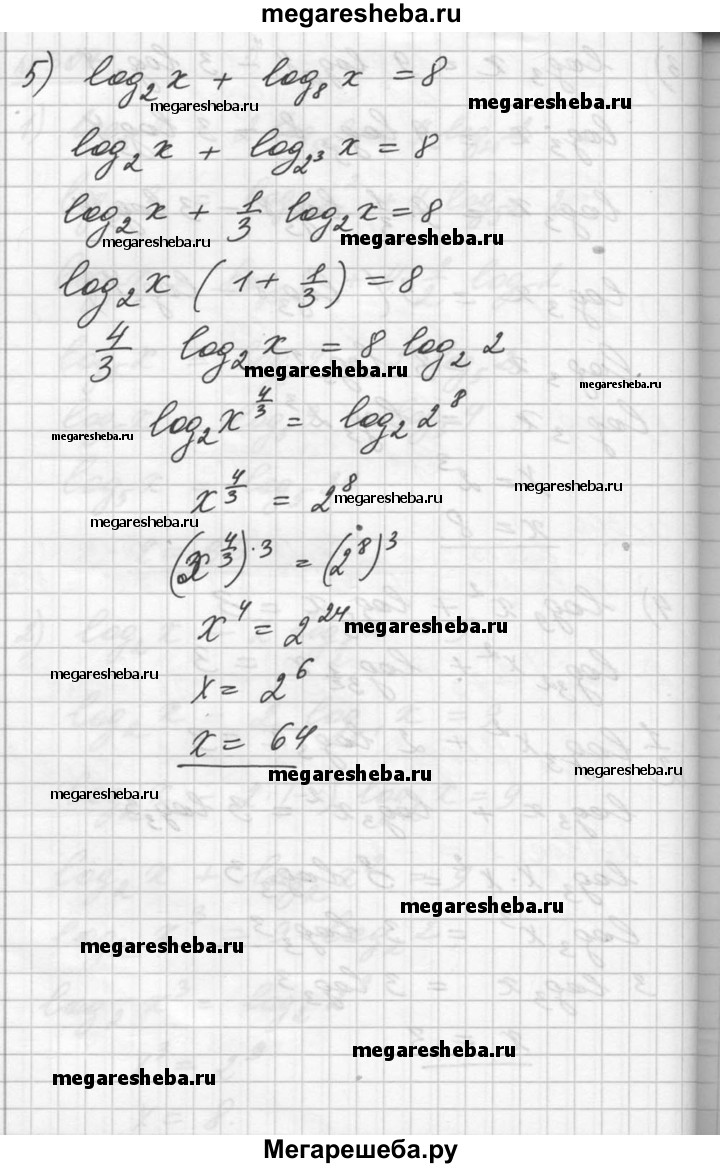 megaresheba.ru
5) log₂ x + log₈ x = 8
megaresheba.ru
megaresheba.ru
log₂ x + log₂³ x = 8
log₂ x + 1/3 log₂ x = 8
megaresheba.ru
megaresheba.ru
log₂ x (1 + 1/3) = 8
4/3 log₂ x = 8 log₂ 2
megaresheba.ru
megaresheba.ru
log₂ x^(4/3) = log₂ 2⁸
megaresheba.ru
x^(4/3) = 2⁸
megaresheba.ru
megaresheba.ru
megaresheba.ru
(x^(4/3))·³ = (2⁸)³
x⁴ = 2²⁴
megaresheba.ru
megaresheba.ru
x = 2⁶
x = 64
megaresheba.ru
megaresheba.ru
megaresheba.ru
megaresheba.ru
megaresheba.ru
megaresheba.ru
megaresheba.ru
Мегарешеба.ру